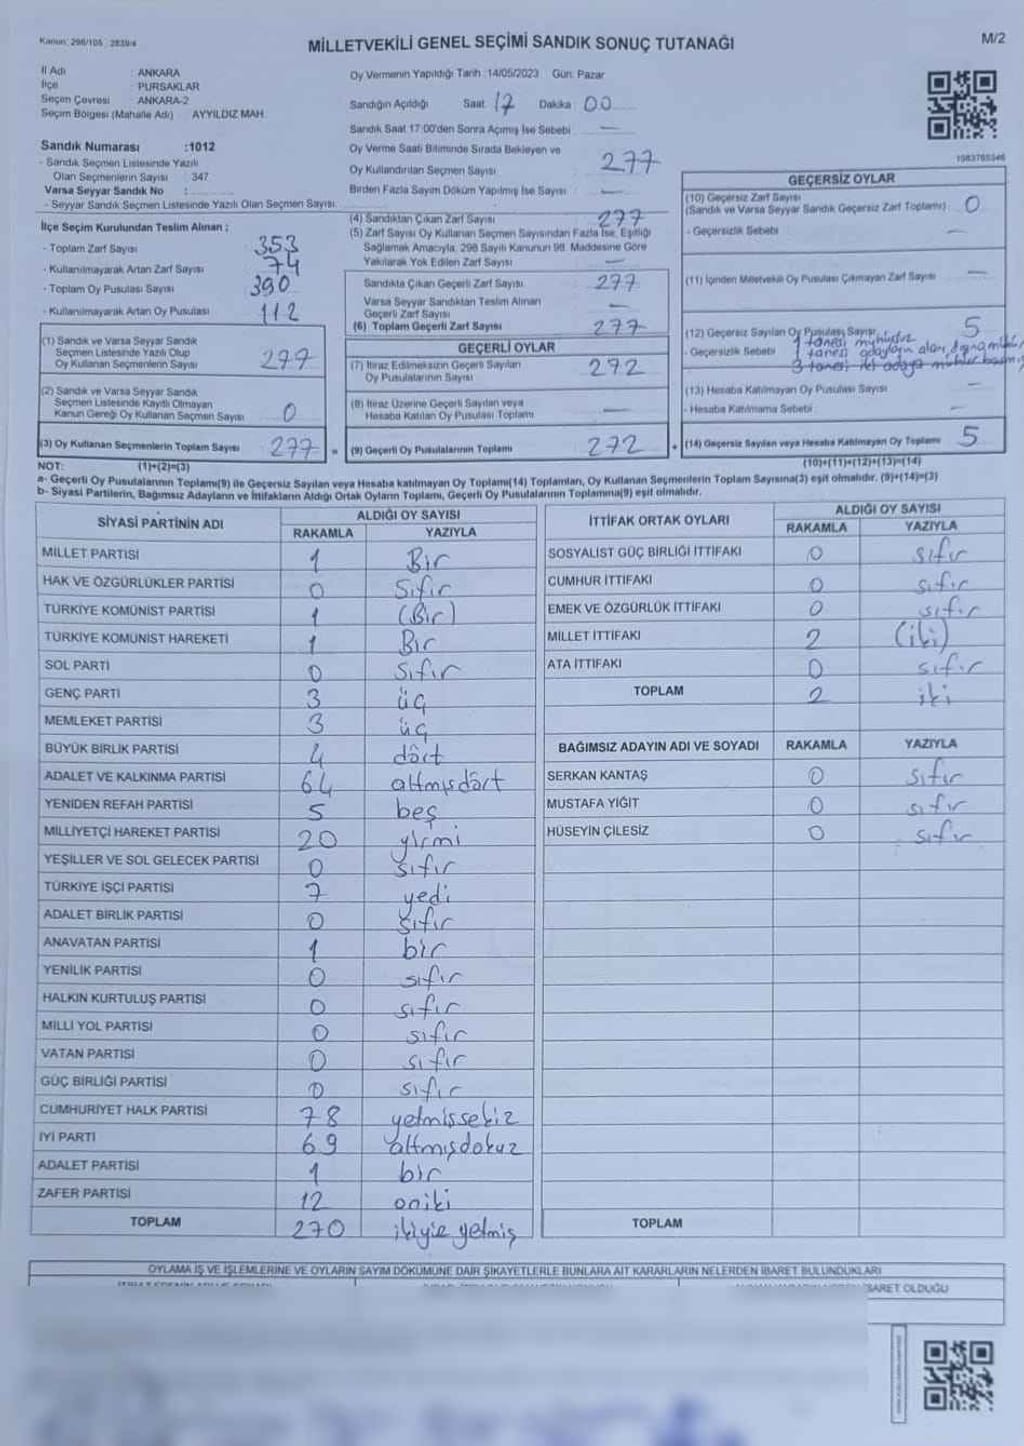 Kanun: 298/105 2839/4
MİLLETVEKİLİ GENEL SEÇİMİ SANDIK SONUÇ TUTANAĞI
M/2
İl Adı : ANKARA
İlçe : PURSAKLAR
Seçim Çevresi : ANKARA-2
Seçim Bölgesi (Mahalle Adı) : AYYILDIZ MAH.
Sandık Numarası :1012
- Sandık Seçmen Listesinde Yazılı
Olan Seçmenlerin Sayısı : 347
Varsa Seyyar Sandık No :
- Seyyar Sandık Seçmen Listesinde Yazılı Olan Seçmen Sayısı
İlçe Seçim Kurulundan Teslim Alınan ;
- Toplam Zarf Sayısı 353
- Kullanılmayarak Artan Zarf Sayısı 74
- Toplam Oy Pusulası Sayısı 390
- Kullanılmayarak Artan Oy Pusulası 112
(1) Sandık ve Varsa Seyyar Sandık
Seçmen Listesinde Yazılı Olup
Oy Kullanan Seçmenlerin Sayısı 277
(2) Sandık ve Varsa Seyyar Sandık
Seçmen Listesinde Kayıtlı Olmayan
Kanun Gereği Oy Kullanan Seçmen Sayısı 0
(3) Oy Kullanan Seçmenlerin Toplam Sayısı 277
Oy Vermenin Yapıldığı Tarih :14/05/2023 Gün: Pazar
Sandığın Açıldığı Saat 17 Dakika 00
Sandık Saat 17:00'den Sonra Açımış İse Sebebi —
Oy Verme Saati Bitiminde Sırada Bekleyen ve
Oy Kullandırılan Seçmen Sayısı 277
Birden Fazla Sayım Döküm Yapılmış İse Sayısı —
(4) Sandıktan Çıkan Zarf Sayısı 277
(5) Zarf Sayısı Oy Kullanan Seçmen Sayısından Fazla İse, Eşitliği
Sağlamak Amacıyla, 298 Sayılı Kanunun 98. Maddesine Göre
Yakılarak Yok Edilen Zarf Sayısı —
Sandıkta Çıkan Geçerli Zarf Sayısı 277
Varsa Seyyar Sandıktan Teslim Alınan
Geçerli Zarf Sayısı —
(6) Toplam Geçerli Zarf Sayısı 277
GEÇERLİ OYLAR
(7) İtiraz Edilmeksizin Geçerli Sayılan
Oy Pusulalarının Sayısı 272
(8) İtiraz Üzerine Geçerli Sayılan veya
Hesaba Katılan Oy Pusulası Toplamı —
= (9) Geçerli Oy Pusulalarının Toplamı 272 +
1983765346
GEÇERSİZ OYLAR
(10) Geçersiz Zarf Sayısı
(Sandık ve Varsa Seyyar Sandık Geçersiz Zarf Toplamı) 0
- Geçersizlik Sebebi —
(11) İçinden Milletvekili Oy Pusulası Çıkmayan Zarf Sayısı —
(12) Geçersiz Sayılan Oy Pusulası Sayısı 5
- Geçersizlik Sebebi 1 tanesi mühürsüz
1 tanesi adayların alanı dışına
3 tanesi iki adaya mühür
(13) Hesaba Katılmayan Oy Pusulası Sayısı —
- Hesaba Katılmama Sebebi —
(14) Geçersiz Sayılan veya Hesaba Katılmayan Oy Toplamı 5
NOT: (1)+(2)=(3) (10)+(11)+(12)+(13)=(14)
a- Geçerli Oy Pusulalarının Toplamı(9) ile Geçersiz Sayılan veya Hesaba katılmayan Oy Toplamı(14) Toplamları, Oy Kullanan Seçmenlerin Toplam Sayısına(3) eşit olmalıdır. (9)+(14)=(3)
b- Siyasi Partilerin, Bağımsız Adayların ve İttifakların Aldığı Ortak Oyların Toplamı, Geçerli Oy Pusulalarının Toplamına(9) eşit olmalıdır.
SİYASİ PARTİNİN ADI ALDIĞI OY SAYISI
RAKAMLA YAZIYLA
MİLLET PARTİSİ 1 Bir
HAK VE ÖZGÜRLÜKLER PARTİSİ 0 Sıfır
TÜRKİYE KOMÜNİST PARTİSİ 1 (Bir)
TÜRKİYE KOMÜNİST HAREKETİ 1 Bir
SOL PARTİ 0 Sıfır
GENÇ PARTİ 3 üç
MEMLEKET PARTİSİ 3 üç
BÜYÜK BİRLİK PARTİSİ 4 dört
ADALET VE KALKINMA PARTİSİ 64 altmışdört
YENİDEN REFAH PARTİSİ 5 beş
MİLLİYETÇİ HAREKET PARTİSİ 20 yirmi
YEŞİLLER VE SOL GELECEK PARTİSİ 0 sıfır
TÜRKİYE İŞÇİ PARTİSİ 7 yedi
ADALET BİRLİK PARTİSİ 0 sıfır
ANAVATAN PARTİSİ 1 bir
YENİLİK PARTİSİ 0 sıfır
HALKIN KURTULUŞ PARTİSİ 0 sıfır
MİLLİ YOL PARTİSİ 0 sıfır
VATAN PARTİSİ 0 sıfır
GÜÇ BİRLİĞİ PARTİSİ 0 sıfır
CUMHURİYET HALK PARTİSİ 78 yetmişsekiz
İYİ PARTİ 69 altmışdokuz
ADALET PARTİSİ 1 bir
ZAFER PARTİSİ 12 oniki
TOPLAM 270 ikiyüz yetmiş
İTTİFAK ORTAK OYLARI ALDIĞI OY SAYISI
RAKAMLA YAZIYLA
SOSYALİST GÜÇ BİRLİĞİ İTTİFAKI 0 sıfır
CUMHUR İTTİFAKI 0 sıfır
EMEK VE ÖZGÜRLÜK İTTİFAKI 0 sıfır
MİLLET İTTİFAKI 2 (iki)
ATA İTTİFAKI 0 sıfır
TOPLAM 2 iki
BAĞIMSIZ ADAYIN ADI VE SOYADI RAKAMLA YAZIYLA
SERKAN KANTAŞ 0 sıfır
MUSTAFA YİĞİT 0 sıfır
HÜSEYİN ÇİLESİZ 0 sıfır
TOPLAM
OYLAMA İŞ VE İŞLEMLERİNE VE OYLARIN SAYIM DÖKÜMÜNE DAİR ŞİKAYETLERLE BUNLARA AİT KARARLARIN NELERDEN İBARET BULUNDUKLARI
İBARET OLDUĞU